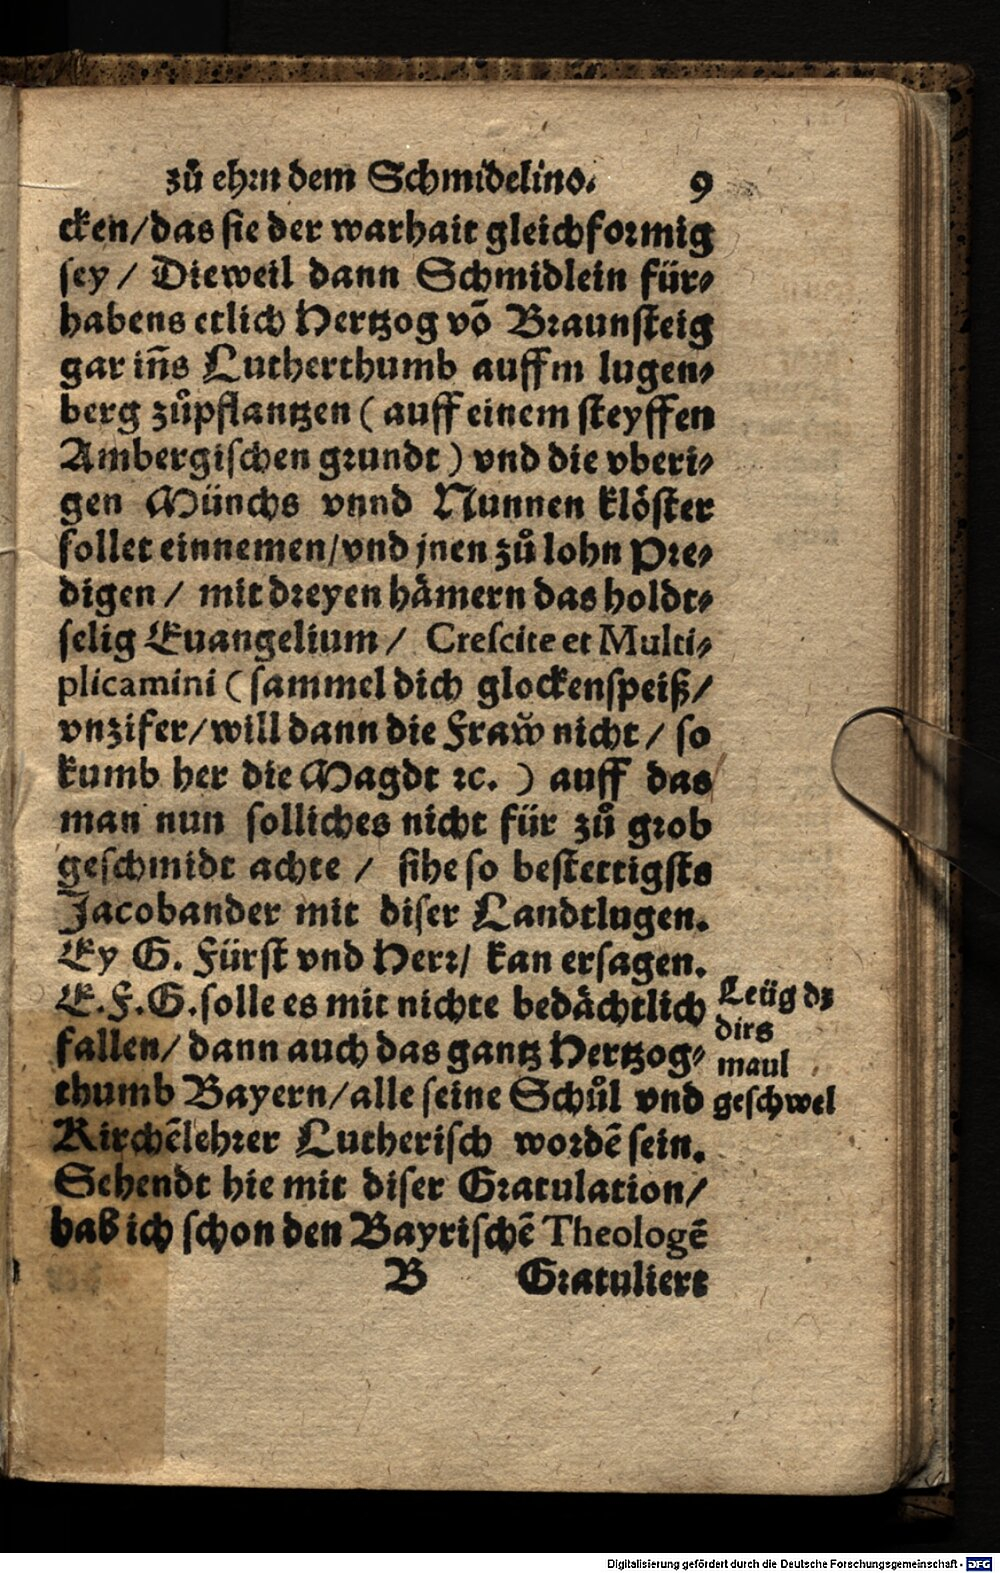 zů ehrn dem Schmidelino. 9
cken/das sie der warhait gleichformig
sey / Dieweil dann Schmidlein für-
habens etlich Hertzog võ Braunsteig
gar iñs Lutherthumb auffm lugen-
berg zůpflantzen ( auff einem steyffen
Ambergischen grundt ) vnd die vberi-
gen Münchs vnnd Nunnen klöster
sollet einnemen/vnd jnen zů lohn Pre-
digen / mit dreyen hämern das holdt-
selig Euangelium / Crescite et Multi-
plicamini ( sammel dich glockenspeiß/
vnzifer/will dann die Fraw nicht / so
kumb her die Magdt ꝛc. ) auff das
man nun solliches nicht für zů grob
geschmidt achte / sihe so bestettigsts
Jacobander mit diser Landtlugen.
Ey G. Fürst vnd Herr/ kan er sagen.
E.F.G.solle es mit nichte bedächtlich
fallen/ dann auch das gantz Hertzog-
thumb Bayern/alle seine Schůl vnd
Kirchẽlehrer Lutherisch wordẽ sein.
Sehendt hie mit diser Gratulation/
hab ich schon den Bayrischẽ Theologẽ
B Gratuliert
Leüg dz
dirs
maul
geschwel
Digitalisierung gefördert durch die Deutsche Forschungsgemeinschaft - DFG